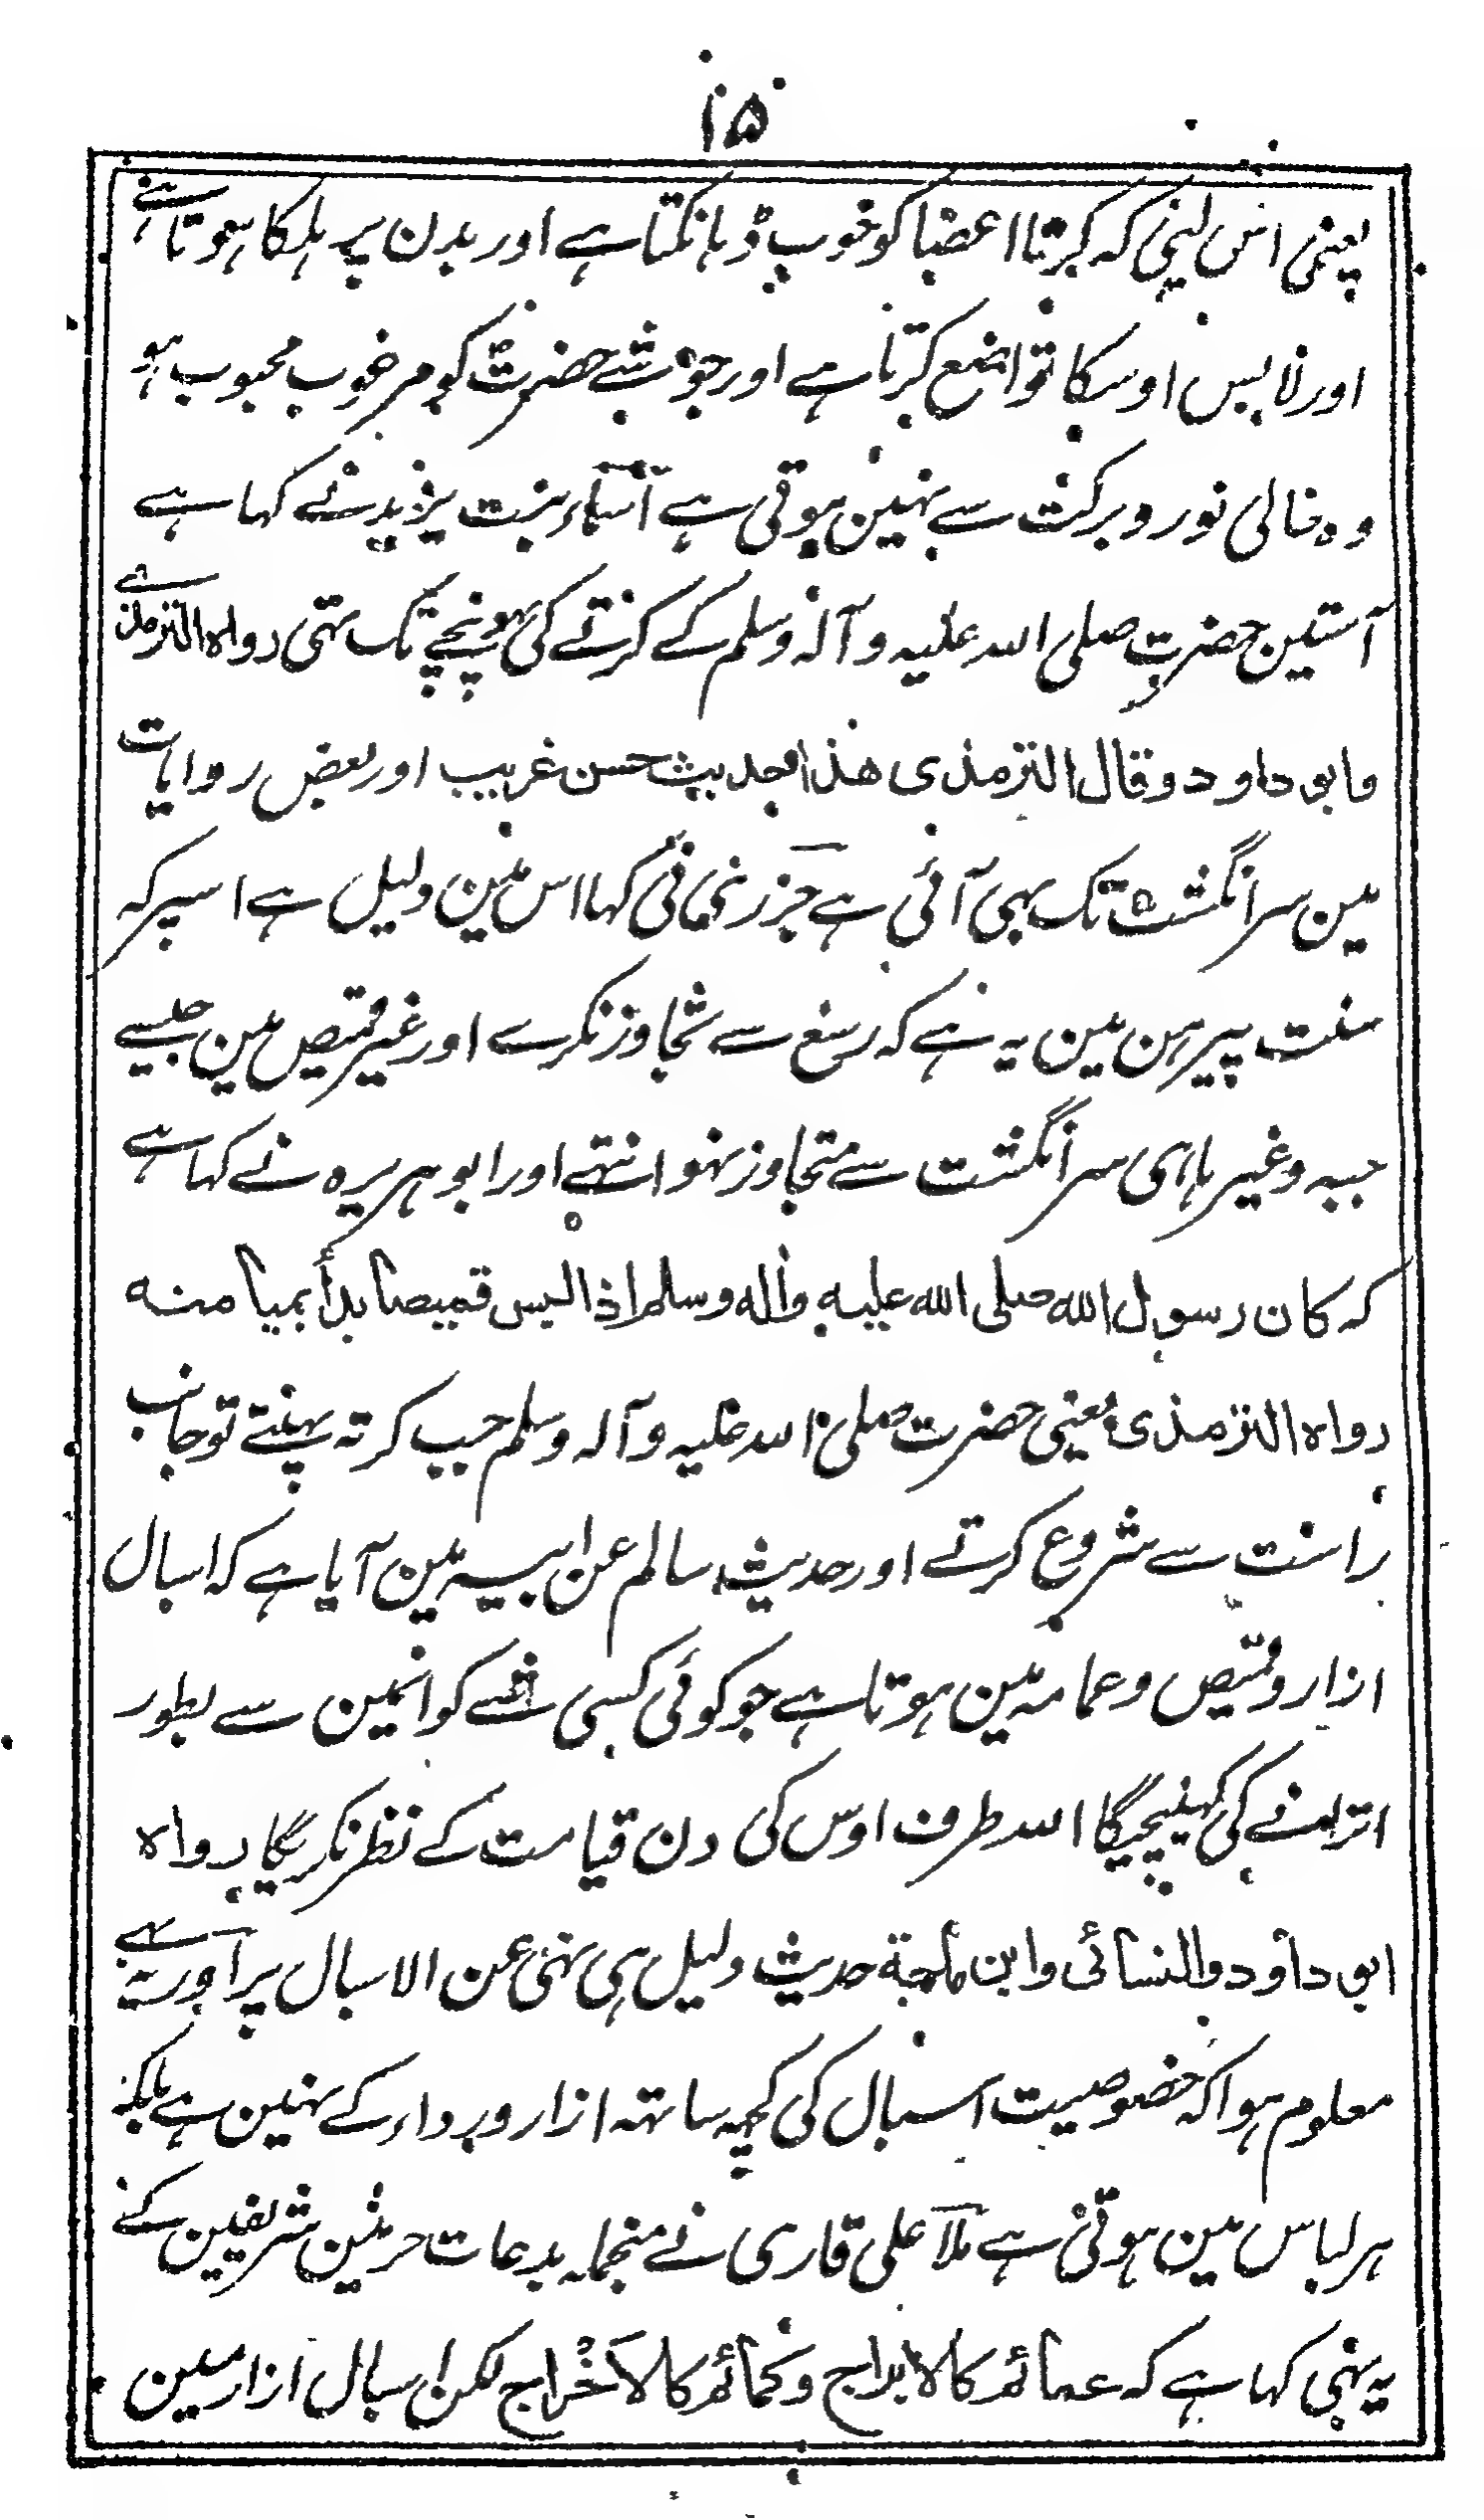 ۱۵
یعنی اس لیئی کہ کرتا اعضا کو خوب ڈہانکتا ہے اور بدن پر ہلکا ہوتا ہے
اور لابس اوسکا تواضع کرتا ہے اور جو شے حضرت کو مرغوب محبوب ہو
وہ خالی نور و برکت سے نہین ہوتی ہے اسماء بنت یزید نے کہا ہے
آستین حضرت صلی اللہ علیہ وآلہ وسلم کے کرتے کی پہونچے تک تہی رواہ الترمذی
وابو داود وقال الترمذی ھذا حدیث حسن غریب اور بعض روایات
مین سر انگشت تک بہی آئی ہے جزری نے کہا اس مین دلیل ہے اسپر کہ
سنت پیرہن مین یہ ہے کہ رسغ سے تجاوز نکرے اور غیر قمیص مین جیسے
جبہ وغیرہا ہی سر انگشت سے متجاوز نہو انتہے اور ابو ہریرہ نے کہا ہے
کہ کان رسول اللہ صلی اللہ علیہ واٰلہ وسلم اذا لبس قمیصا بدأ بمیامنہ
رواہ الترمذی یعنی حضرت صلی اللہ علیہ وآلہ وسلم جب کرتہ پہنتے تو جانب
راست سے شروع کرتے اور حدیث سالم عن ابیہ مین آیا ہے کہ اسبال
ازار وقمیص وعمامہ مین ہوتا ہے جو کوئی کسی شے کو انمین سے بطور
اترانے کی کہینچیگا اللہ طرف اوس کی دن قیامت کے نظر نکریگا رواہ
ابو داود والنسائی وابن ماجة حدیث دلیل ہی نہی عن الاسبال پر اور یہ بہی
معلوم ہوا کہ خصوصیت اسبال کی کچہہ ساتہہ ازار و رداء کے نہین ہے بلکہ
ہر لباس مین ہوتی ہے ملا علی قاری نے منجملہ بدعات حرمین شریفین کے
یہ بہی کہا ہے کہ عمائم کالابراج وکمائم کالاخراج لکن اسبال ازار مین